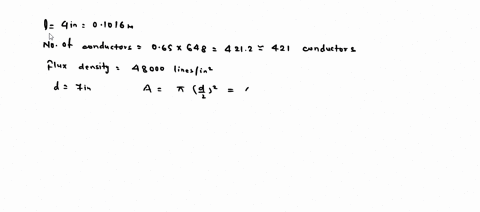 l = 4in = 0.1016m
No. of conductors = 0.65 x 648 = 421.2 ≈ 421 conductors
flux density = 48000 lines/in²
d = 7in A = π (d/2)² =